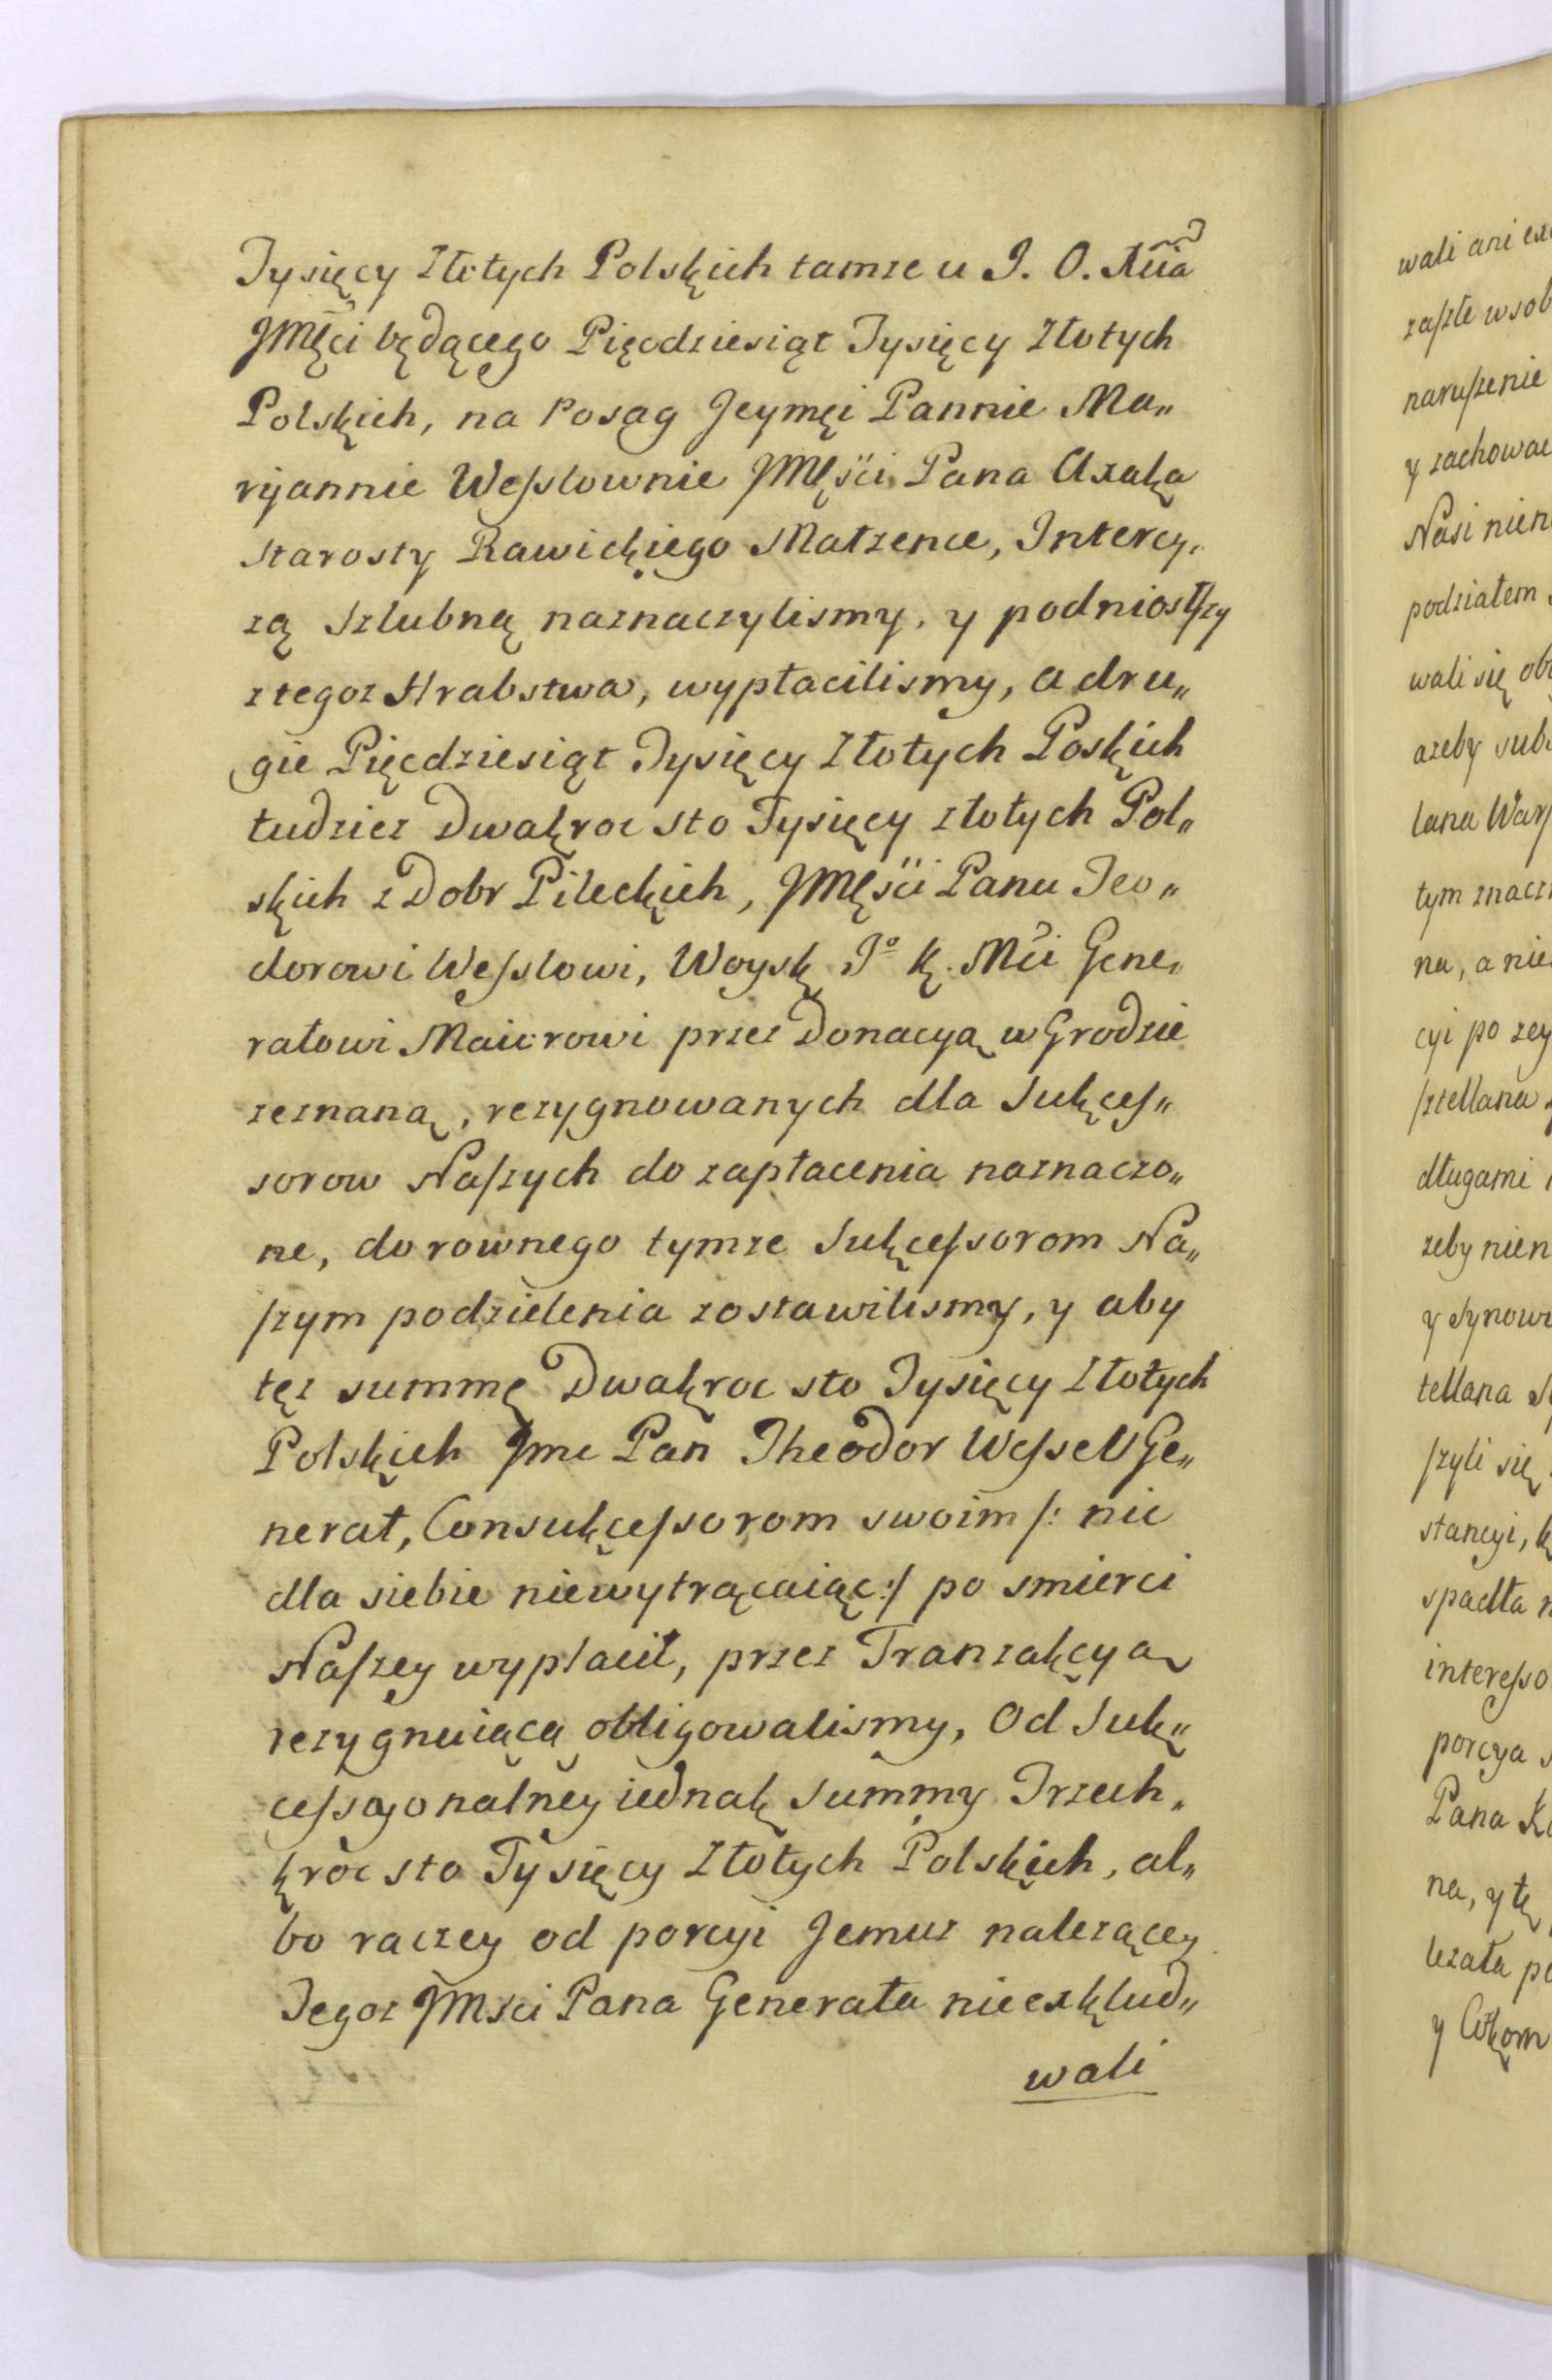 Tysięcy Złotych Polskich tamze u J. O. Xcia
JMści będącego Pięcdziesiąt Tysięcy Złotych
Polskich, na Posag Jeymci Pannie Ma„
ryjannie Weſslownie JMści Pana Axaka
Starosty Rawickiego Małzence, Intercy„
zą Szlubną naznaczylismy, y podnioszſzy
z tegoz Hrabstwa, wypłacilismy, a dru„
gie Pięcdziesiąt Tysięcy Złotych Poskich
tudziez Dwakroc sto Tysięcy złotych Pol„
skich z Dobr Pileckich, JMści Panu Teo„
dorowi Weſslowi, Woysk Jo K. Mci Gene„
rałowi Maiorowi przez Donacyą w Grodzie
zeznaną, rezygnowanych dla Sukceſ„
sorow Naſzych do zapłacenia naznaczo„
ne, do rownego tymze Sukceſsorom Na„
ſzym podzielenia zostawilismy, y aby
tęz summę Dwakroc sto Tysięcy Złotych
Polskich Jmc Pan Theodor Weſsel Ge„
nerał, Consukceſsorom swoim /: nic
dla siebie niewytrącaiąc :/ po smierci
Naſzey wypłacił, przez Tranzakcyą
rezygnuiącą obligowalismy, Od Suk„
ceſsyonalney iednak Summy Trzech„
kroc sto Tysięcy Złotych Polskich, al„
bo raczey od porcyi Jemuz nalezącey
Tegoz JMsci Pana Generała nie exklud„
wali
wali ani
zaſzłe w sob
naruſzenie
y zachowac
Nasi nien
podziałem
wali się
azeby
lana Warſ
tym znacz
na, a nie
cyi po zey
ſztellana
długami
zeby nien
y Synow
tellana
ſzyli się
stancyi,
spadła
intereſso
porcya
Pana
na, y tę
lezała
y